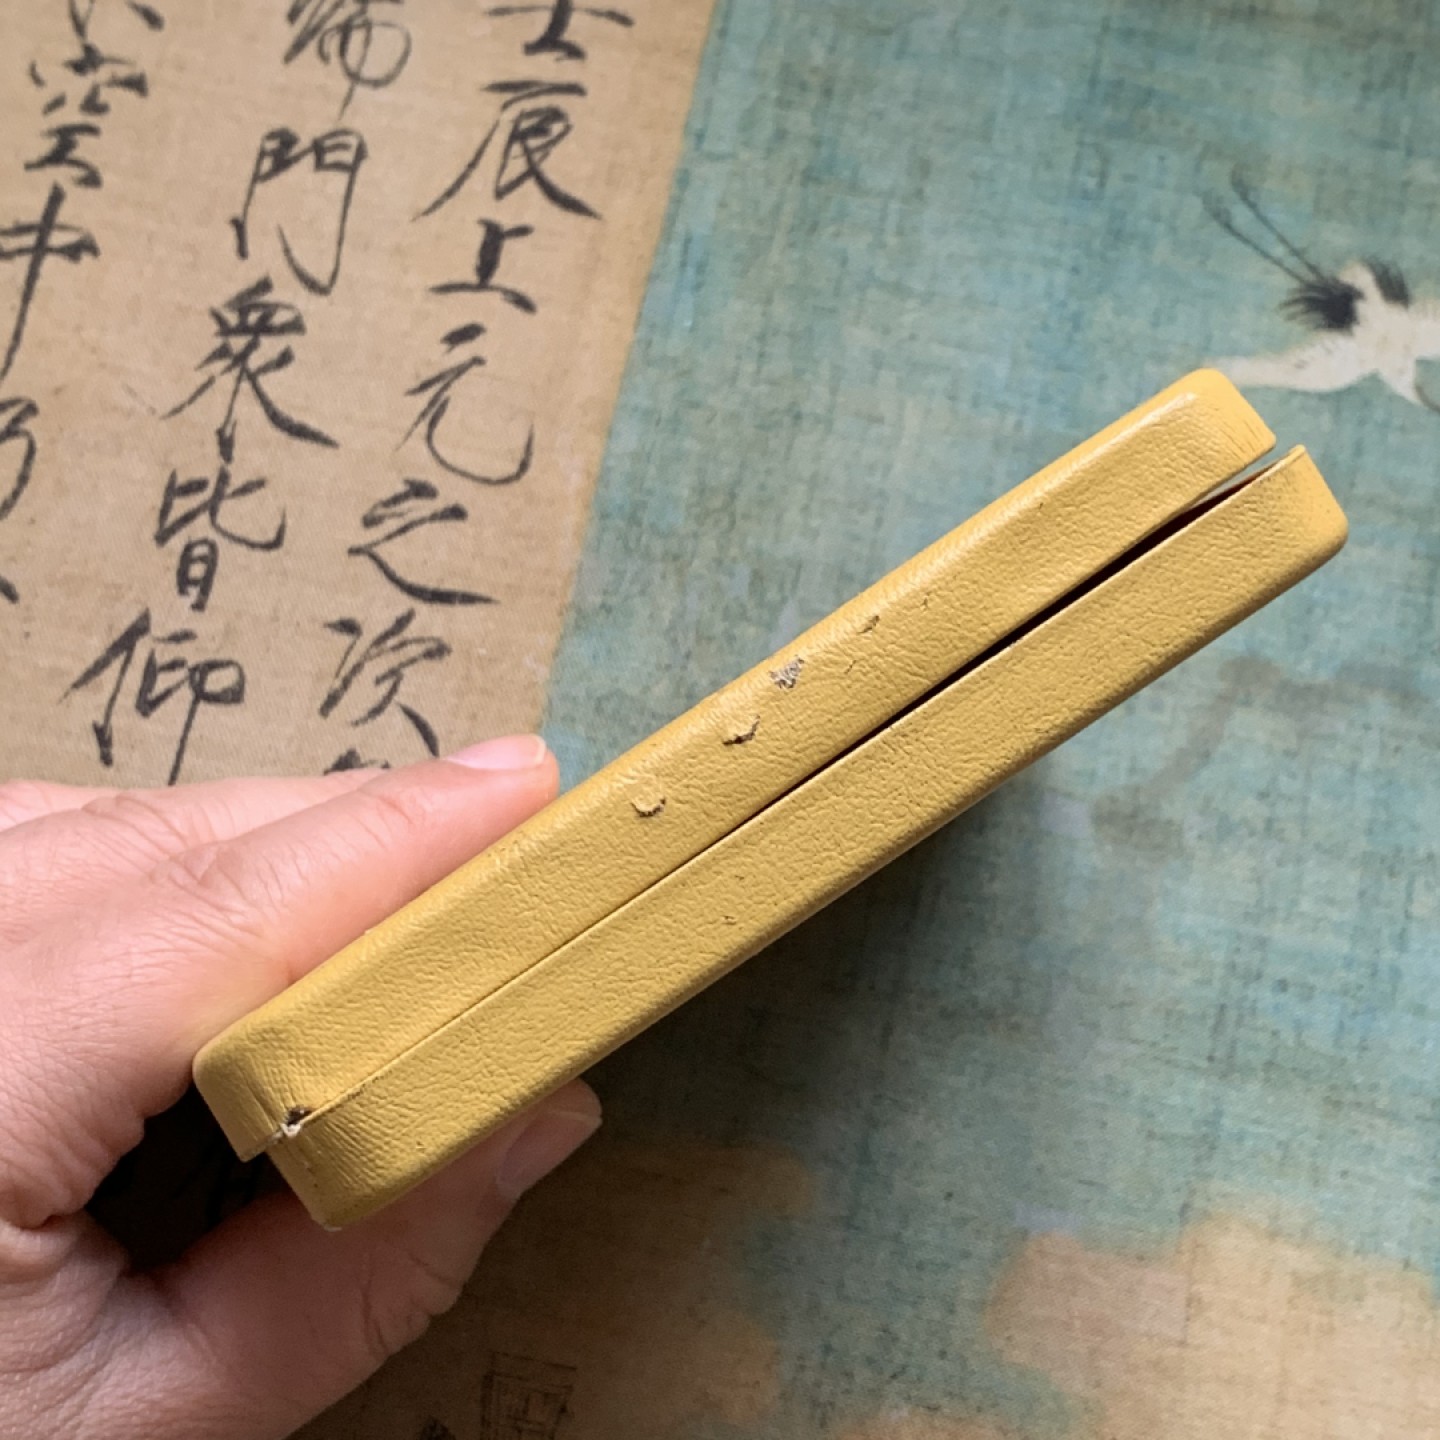 壬辰上元之次
端門眾皆仰
空中